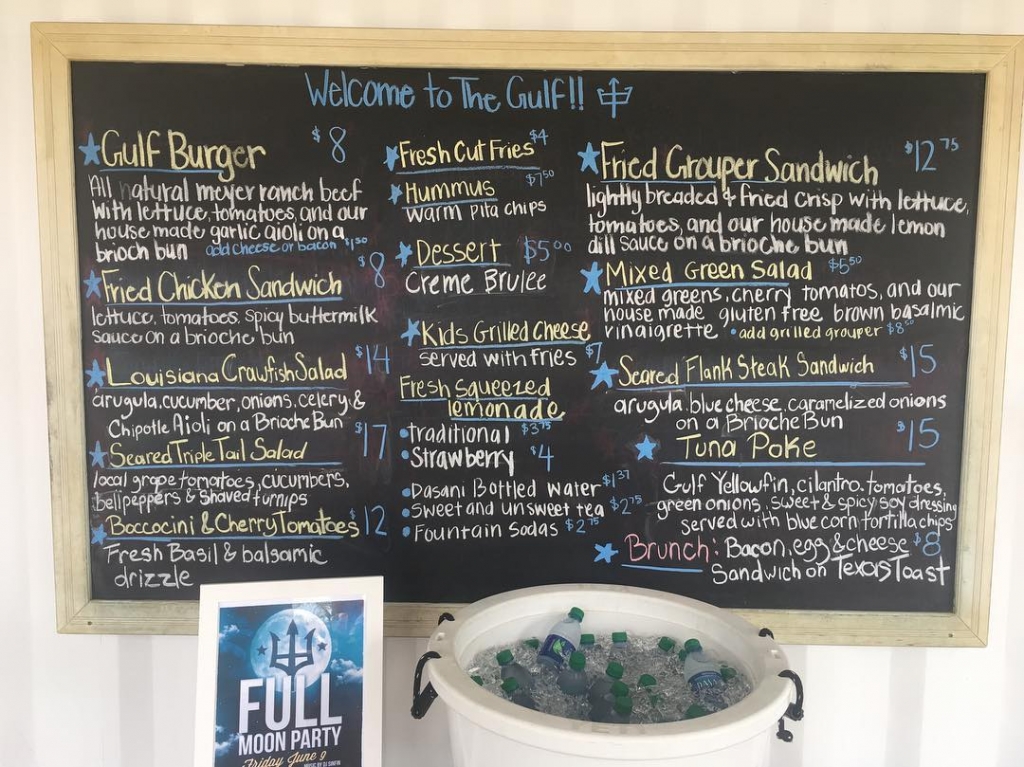 Welcome to The Gulf!!
Gulf Burger $8
All natural meyer ranch beef
with lettuce, tomatoes, and our
house made garlic aioli on a
brioch bun add cheese or bacon $1.50
Fried Chicken Sandwich $8
lettuce, tomatoes, spicy buttermilk
sauce on a brioche bun
Louisiana Crawfish Salad $14
arugula, cucumber, onions, celery &
Chipotle Aioli on a Brioche Bun
Seared Triple Tail Salad $17
local grape tomatoes, cucumbers,
bell peppers & shaved turnips
Boccocini & Cherry Tomatoes $12
Fresh Basil & balsamic
drizzle
Fresh Cut Fries $4
Hummus $7.50
warm pita chips
Dessert $5.00
Creme Brulee
Kids Grilled Cheese
served with fries $7
Fresh Squeezed
lemonade
• traditional $3.75
• Strawberry $4
• Dasani Bottled Water $1.37
• Sweet and unsweet tea $2.75
• Fountain Sodas $2.75
Fried Grouper Sandwich $12.75
lightly breaded & fried crisp with lettuce,
tomatoes, and our house made lemon
dill sauce on a brioche bun
Mixed Green Salad $5.50
mixed greens, cherry tomatos, and our
house made gluten free brown basalmic
vinaigrette • add grilled grouper $8.50
Seared Flank Steak Sandwich $15
arugula, blue cheese, caramelized onions
on a Brioche Bun
Tuna Poke $15
Gulf Yellowfin, cilantro, tomatoes,
green onions, sweet & spicy soy dressing
served with blue corn tortilla chips
Brunch: Bacon, egg & cheese $8
Sandwich on Texas Toast
FULL
MOON PARTY
Friday June 9